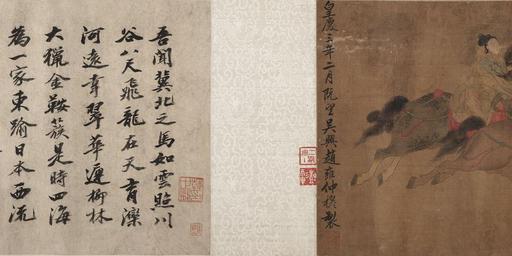 皇慶三年二月既望吳興趙雍仲穆製
吾聞冀北之馬如雲照川
谷八尺飛龍在天育灤
河遠幸翠華遲柳林
大獵金鞍簇是時四海
為一家東踰日本西流